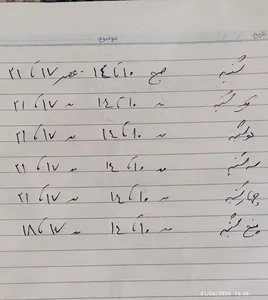 تاریخ: موضوع:
شنبه صبح ۱۰ تا ۱۴ - عصر ۱۷ تا ۲۱
یکشنبه 〃 ۱۰ تا ۱۴ 〃 ۱۷ تا ۲۱
دوشنبه 〃 ۱۰ تا ۱۴ 〃 ۱۷ تا ۲۱
سه شنبه 〃 ۱۰ تا ۱۴ 〃 ۱۷ تا ۲۱
چهارشنبه 〃 ۱۰ تا ۱۴ 〃 ۱۷ تا ۲۱
پنج شنبه 〃 ۱۰ تا ۱۴ 〃 ۱۷ تا ۱۸